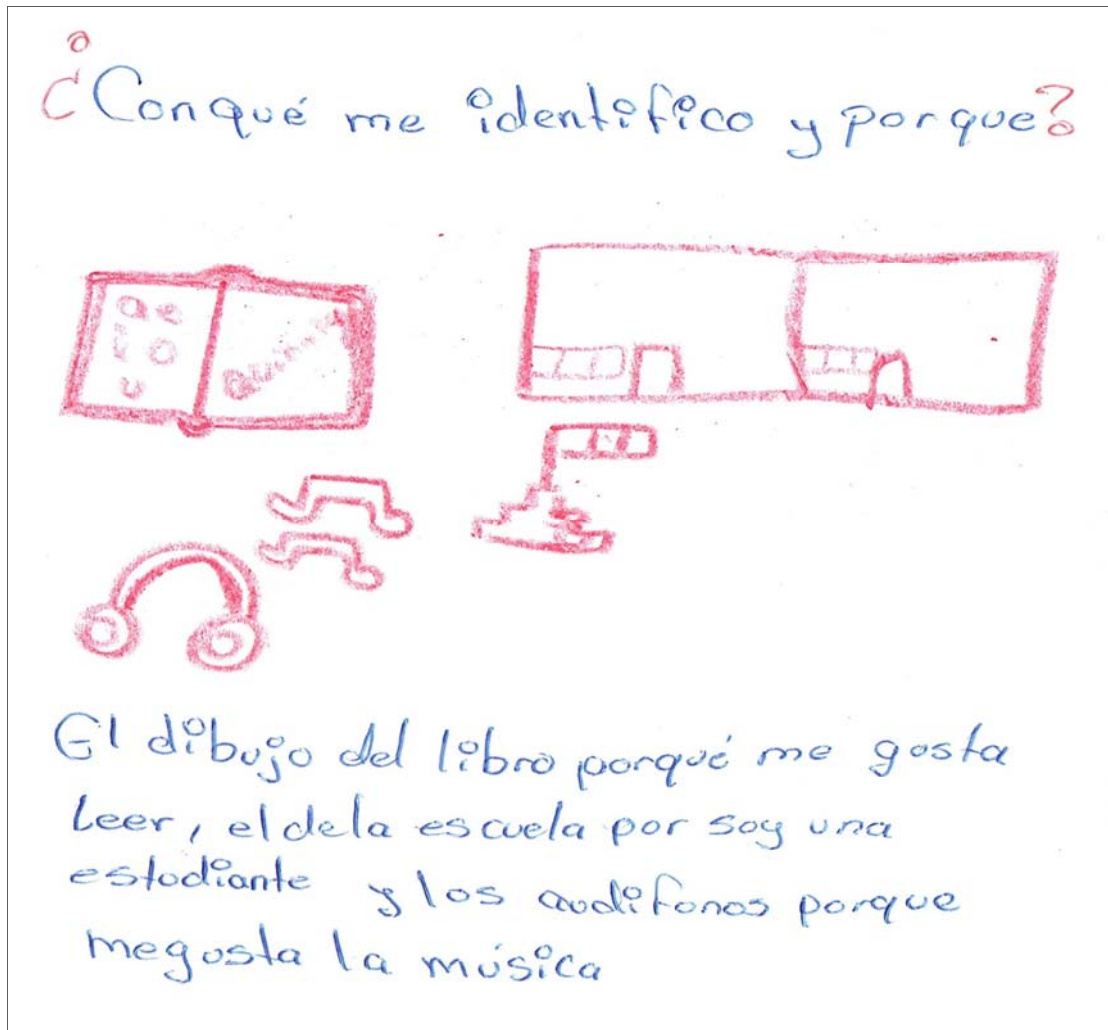 ¿Conqué me identifico y porque?
a e
i o
u
El dibujo del libro porqué me gusta
leer, el dela escuela por soy una
estudiante y los audifonos porque
megusta la música